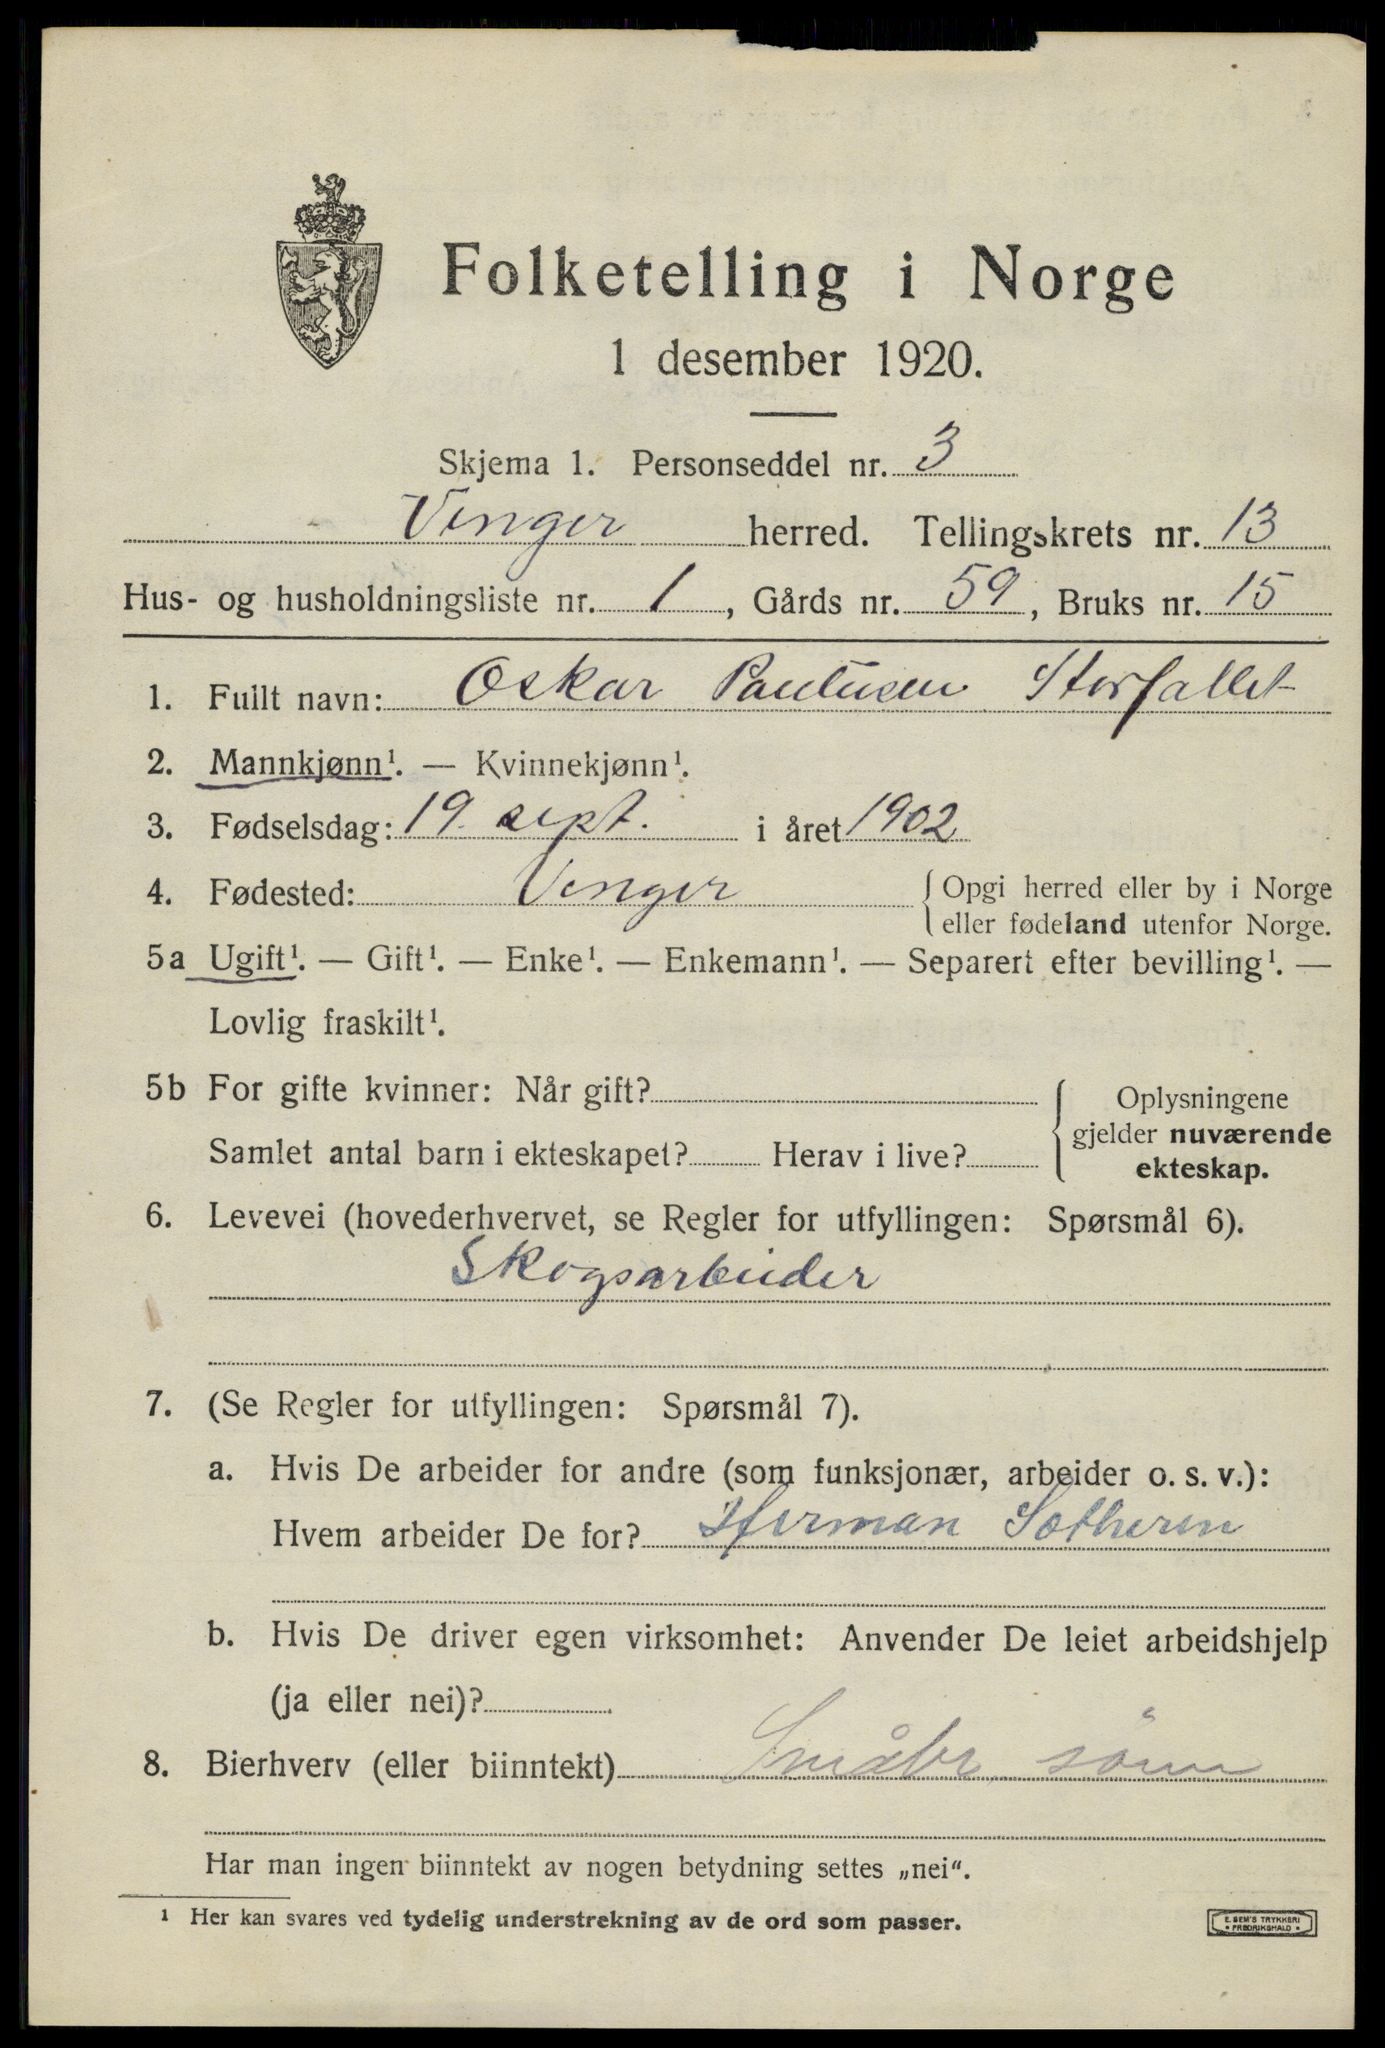 Folketelling i Norge
1 desember 1920.
Skjema 1. Personseddel nr. 3
Vinger herred. Tellingskrets nr. 13
Hus- og husholdningsliste nr. 1, Gårds nr. 59, Bruks nr. 15
1. Fullt navn: Oskar Paulusen Storfallet
2. Mannkjønn¹. — Kvinnekjønn¹.
3. Fødselsdag: 19. sept. i året 1902
4. Fødested: Vinger { Opgi herred eller by i Norge
eller fødeland utenfor Norge.
5a Ugift¹. — Gift¹. — Enke¹. — Enkemann¹. — Separert efter bevilling¹. —
Lovlig fraskilt¹.
5b For gifte kvinner: Når gift? Oplysningene
gjelder nuværende
Samlet antal barn i ekteskapet? Herav i live? ekteskap.
6. Levevei (hovederhvervet, se Regler for utfyllingen: Spørsmål 6).
Skogsarbeider
7. (Se Regler for utfyllingen: Spørsmål 7).
a. Hvis De arbeider for andre (som funksjonær, arbeider o. s. v.):
Hvem arbeider De for? Herman
b. Hvis De driver egen virksomhet: Anvender De leiet arbeidshjelp
(ja eller nei)?
8. Bierhverv (eller biinntekt) Småbr. sönn
Har man ingen biinntekt av nogen betydning settes „nei“.
¹ Her kan svares ved tydelig understrekning av de ord som passer.
E. SEM'S TRYKKERI
• FREDRIKSHALD •